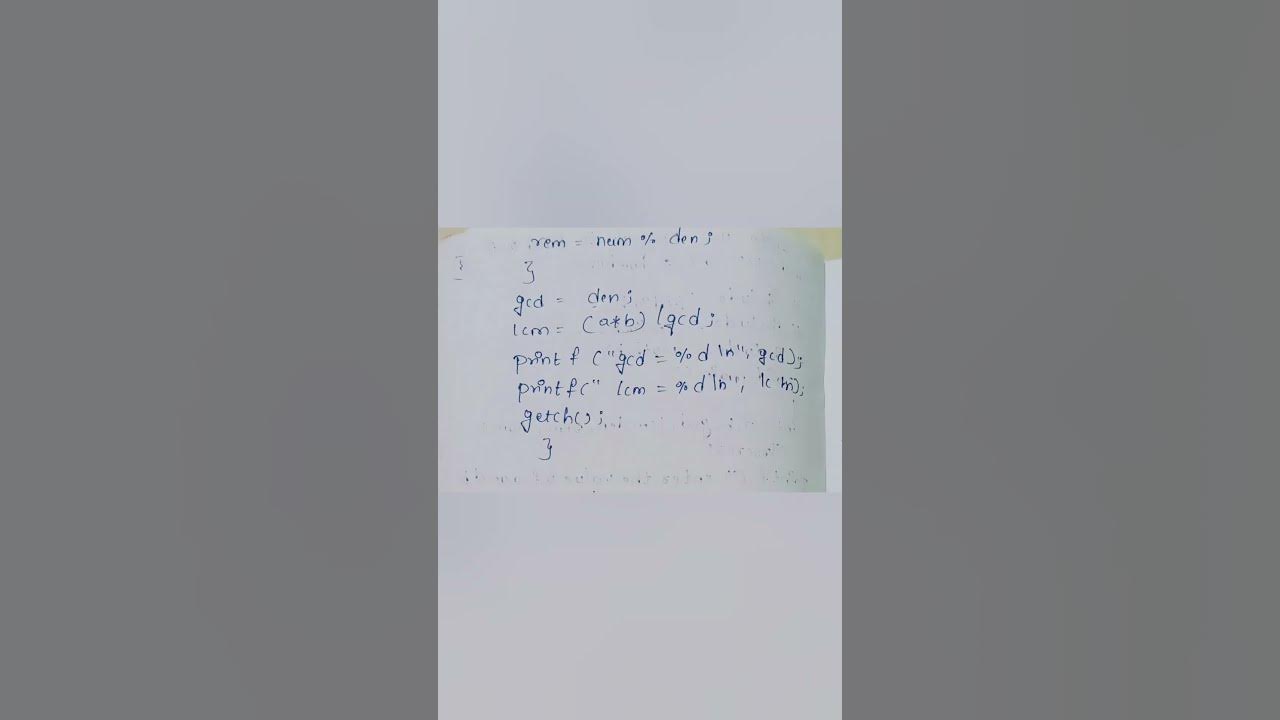 rem = num % den;
}
gcd = den;
lcm = (a*b) /gcd;
printf ("gcd = %d \n"; gcd);
printf(" lcm = %d \n"; lcm);
getch();
}